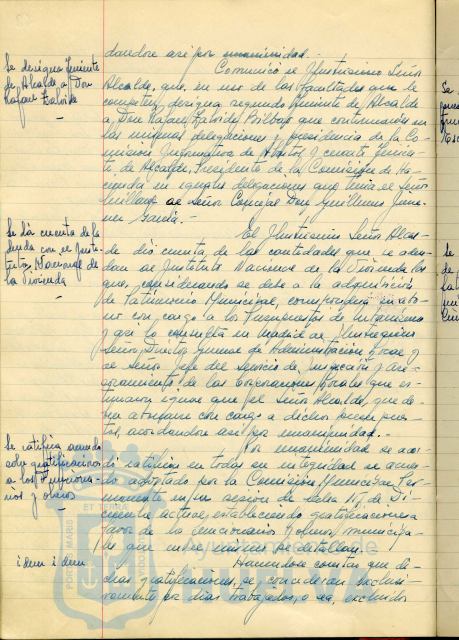 dandose así por unanimidad.-
Se designa Teniente
de Alcalde a Don
Rafael
Comunicó el Ilustrisimo Señor
Alcalde, que, en uso de las facultades que le
competen, designa segundo Teniente de Alcalde
a Don Rafael que continuará en
las mismas delegaciones y presidencia de la Co-
mision Informativa de Abastos y cuarto Tenien-
te de Alcalde, Presidente de la Comisión de Ha-
cienda en iguales delegaciones que tenia el Señor
al Señor Concejal Don Guillermo Jime-
nez García.-
Se dá cuenta de la
deuda con el Insti-
tuto Nacional de
la Vivienda
El Ilustrisimo Señor Alcal-
de dió cuenta de las cantidades que se adeu-
dan al Instituto Nacional de la Vivienda las
que, considerando se debe a la adquisición
de Patrimonio Municipal, correspondería
con cargo a los Presupuestos de Urbanismo
y así lo consulta en Madrid al Ilustrisimo
Señor Director General de Administración Local y
al Señor Jefe del Servicio de Inspección y Ase-
soramiento de las Corporaciones Locales que es-
timaron igual que el Señor Alcalde, que de-
bía abonarse con cargo a dichos presupues-
tos, acordandose así por unanimidad.-
Se ratifica acuerdo
sobre gratificaciones
a los Funciona-
rios y obreros
Por unanimidad se acor-
dó ratificar en todas su integridad el acuer-
do adoptado por la Comisión Municipal Per-
manente en su sesion de fecha 17 de Di-
ciembre actual, estableciendo gratificaciones a
favor de los funcionarios y obreros municipa-
les que en el mismo se detallan.
idem idem
Haciendose constar que di-
chas gratificaciones, se concederan exclusi-
vamente por dias trabajados, o sea, excluidos